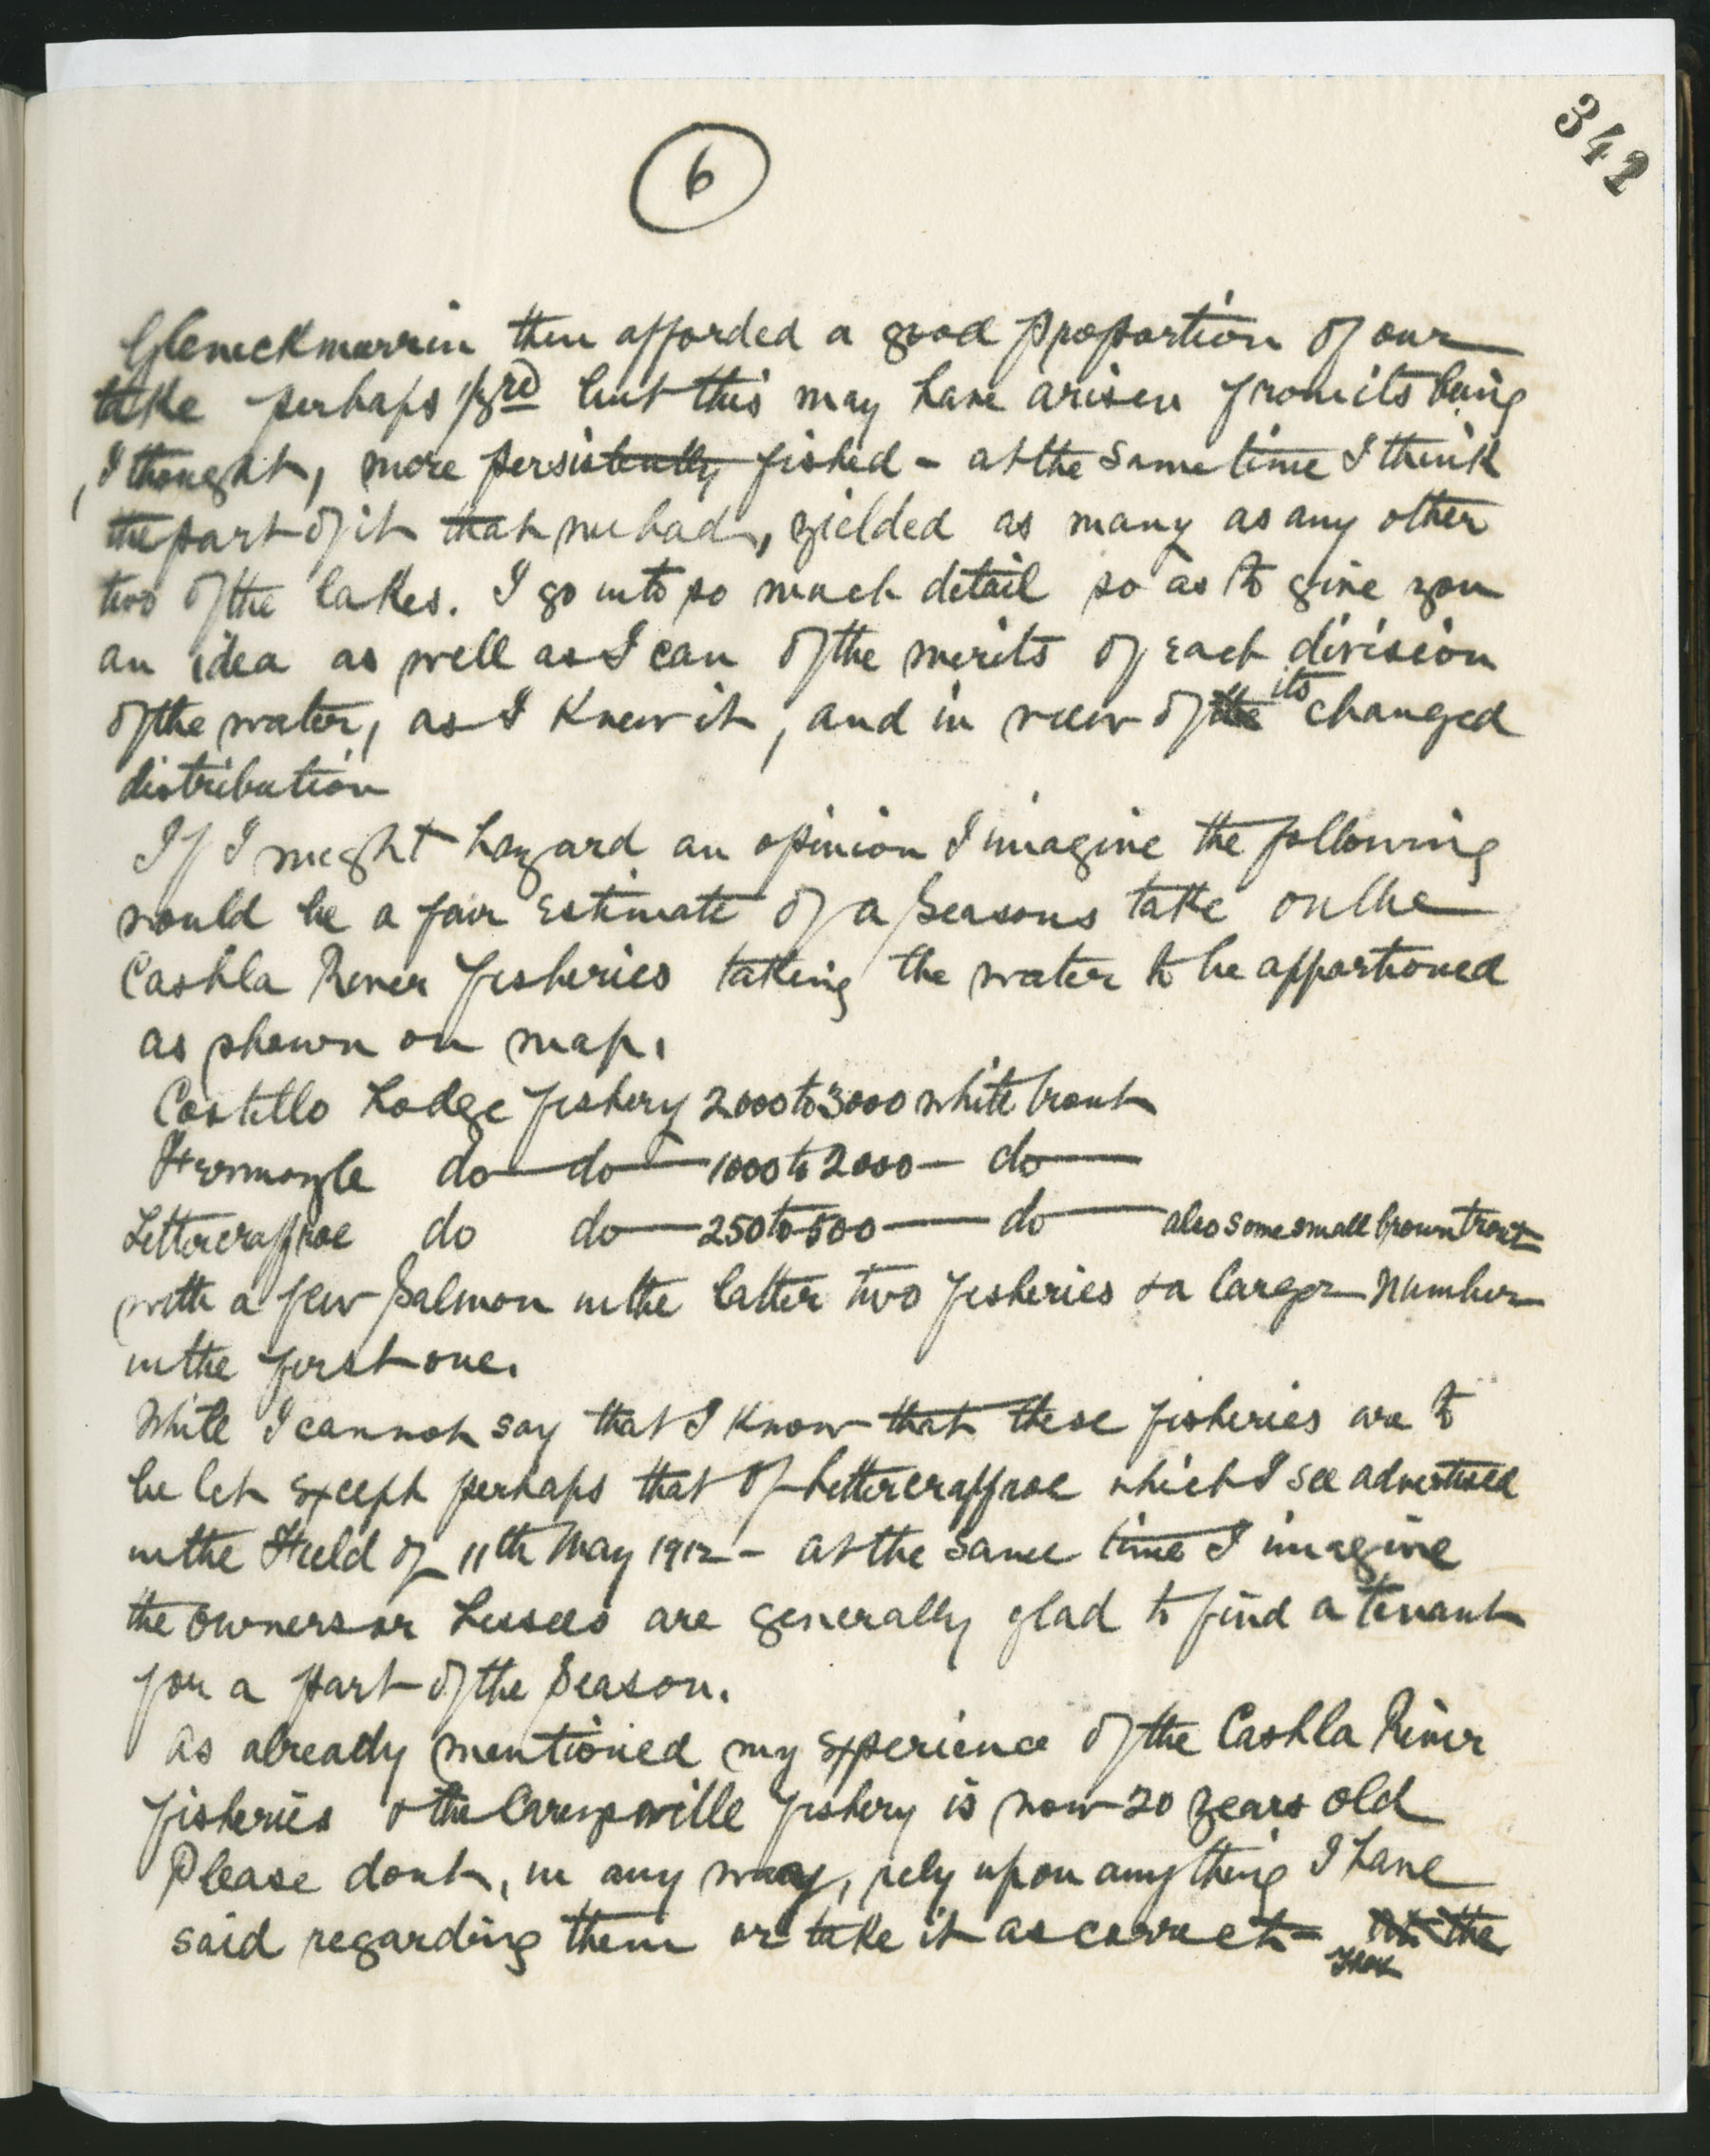 342
6
Glenickmurrin then afforded a good proportion of our
take perhaps 1/3rd but this may have arisen from its being
, I thought, more persistently fished - at the same time I think
the part of it that we had, yielded as many as any other
two of the lakes. I go into so much detail so as to give you
an idea as well as I can of the merits of each division
of the water, as I knew it, and in view of the its changed
distribution
If I might hazard an opinion I imagine the following
would be a fair estimate of a Seasons take on the
Cashla River fisheries taking the water to be apportioned
as shewn on map.
Costello Lodge fishery 2000 to 3000 white trout
Fermoyle do do 1000 to 2000 - do
Lettercraffroe do do 250 to 500 do also some small brown trout
with a few Salmon in the latter two fisheries & a larger Number
in the first one.
While I cannot say that I know that these fisheries are to
be let except perhaps that of Lettercraffroe which I see advertised
in the Field of 11th May 1912 - at the same time I imagine
the owners or Lessees are generally glad to find a tenant
for a part of the Season.
As already mentioned my experience of the Cashla River
fisheries & the fishery is now 20 years old
Please dont, in any way, rely upon anything I have
said regarding them or take it as correct - the